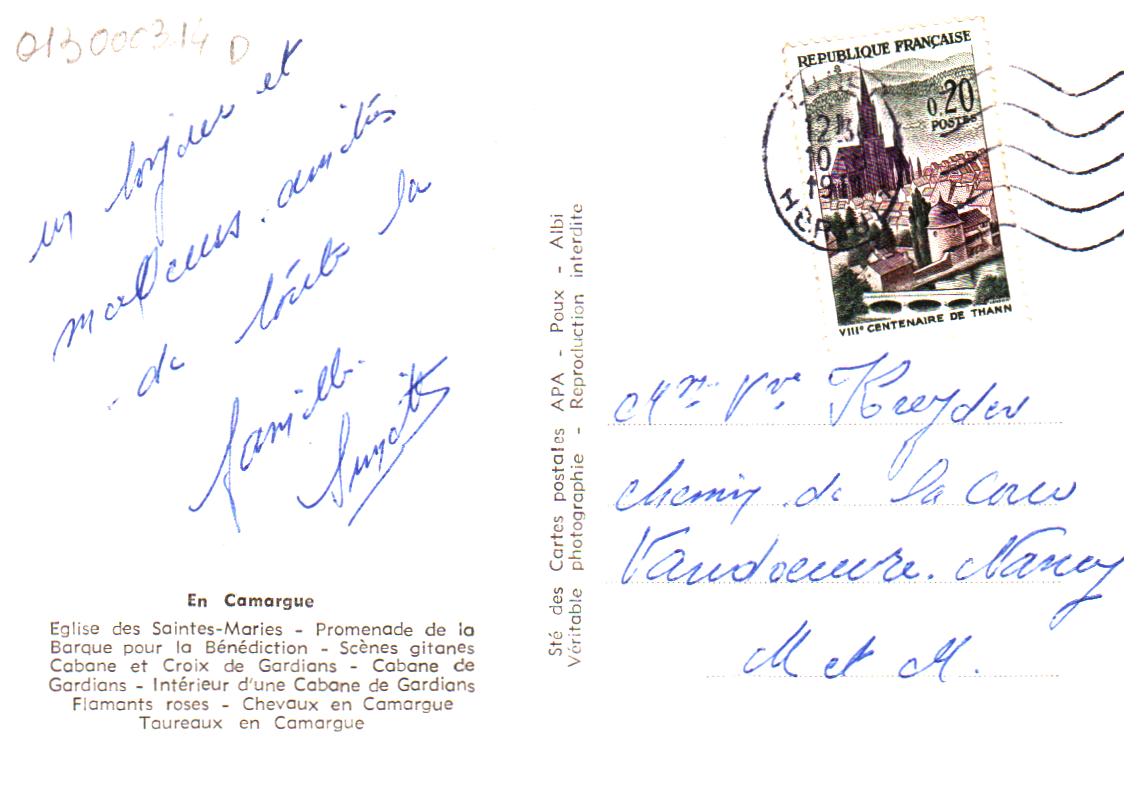 013000314 D
un bonjour et
meilleurs amitiés
de toute la
famille
En Camargue
Eglise des Saintes-Maries - Promenade de la
Barque pour la Bénédiction - Scènes gitanes
Cabane et Croix de Gardians - Cabane de
Gardians - Intérieur d'une Cabane de Gardians
Flamants roses - Chevaux en Camargue
Taureaux en Camargue
Sté des Cartes postales APA - Poux - Albi
Véritable photographie - Reproduction interdite
REPUBLIQUE FRANÇAISE
0,20
POSTES
VIIIe CENTENAIRE DE THANN
12H
10
HERAULT
Mme Vve Kreyder
chemin de la
Vandoeuvre. Nancy
M et M.